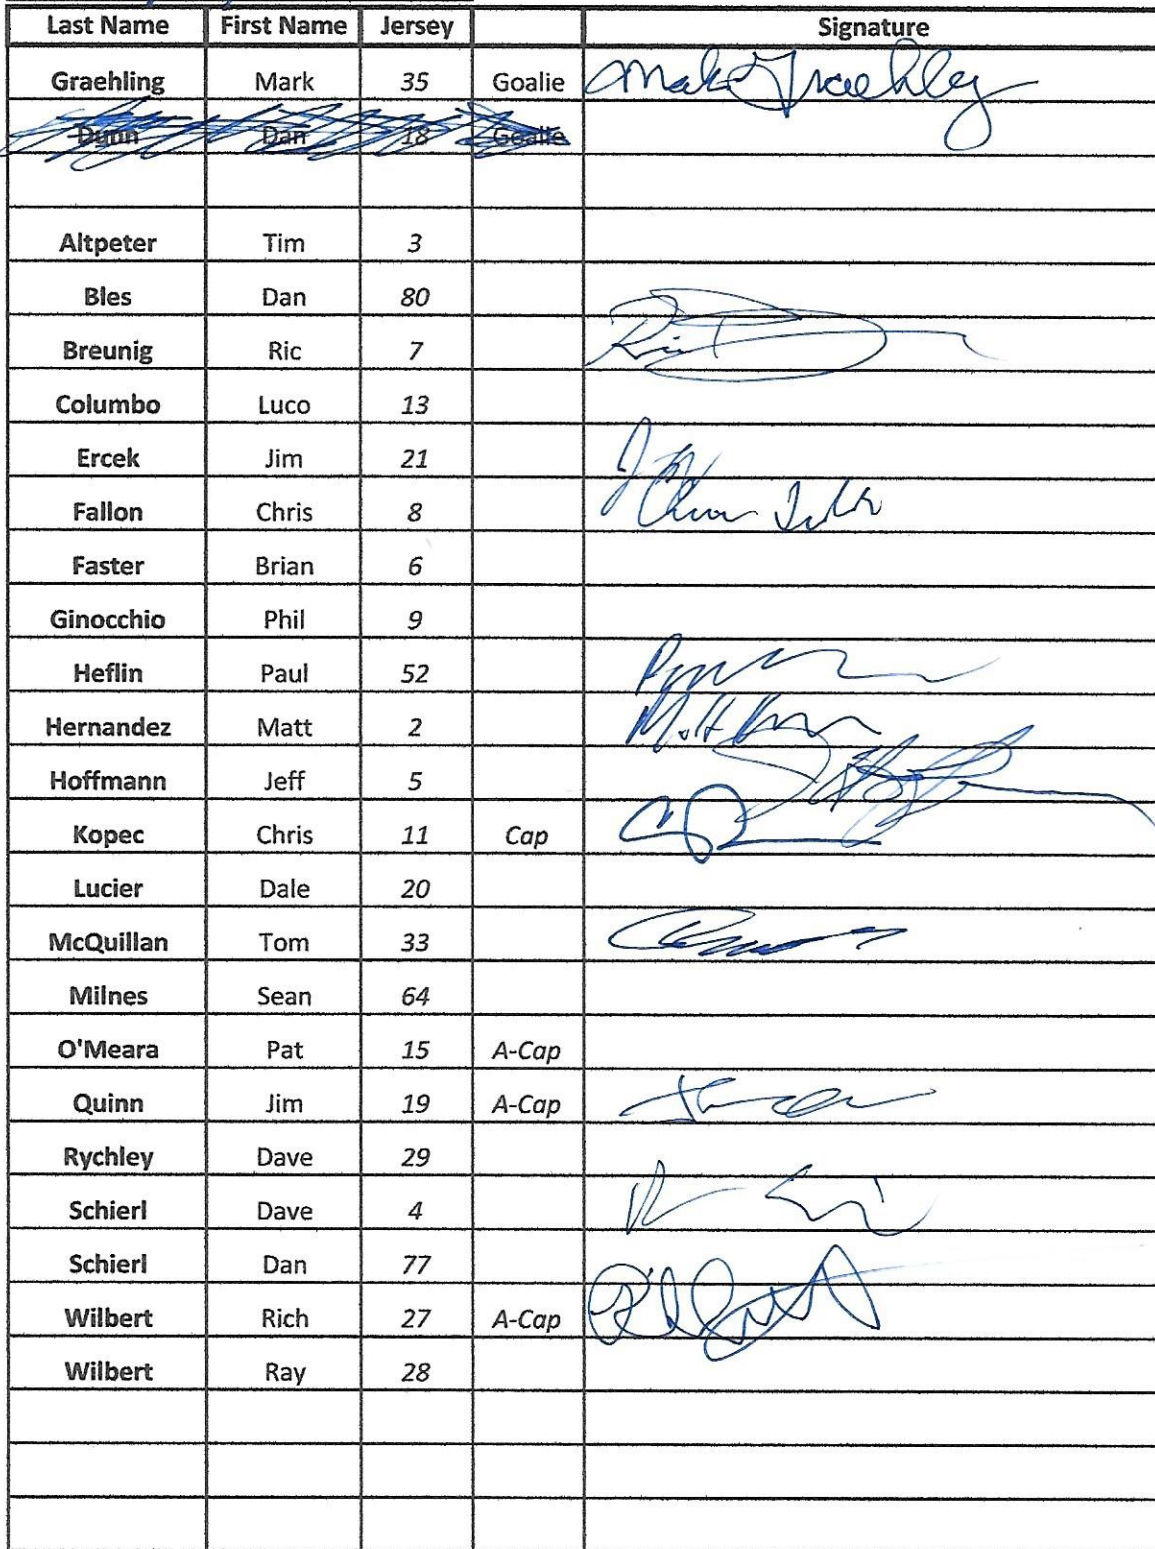 Last Name First Name Jersey Signature
Graehling Mark 35 Goalie Mark Graehling
Dunn Dan 18 Goalie
Altpeter Tim 3
Bles Dan 80
Breunig Ric 7
Columbo Luco 13
Ercek Jim 21
Fallon Chris 8
Faster Brian 6
Ginocchio Phil 9
Heflin Paul 52
Hernandez Matt 2
Hoffmann Jeff 5
Kopec Chris 11 Cap
Lucier Dale 20
McQuillan Tom 33
Milnes Sean 64
O'Meara Pat 15 A-Cap
Quinn Jim 19 A-Cap
Rychley Dave 29
Schierl Dave 4
Schierl Dan 77
Wilbert Rich 27 A-Cap
Wilbert Ray 28